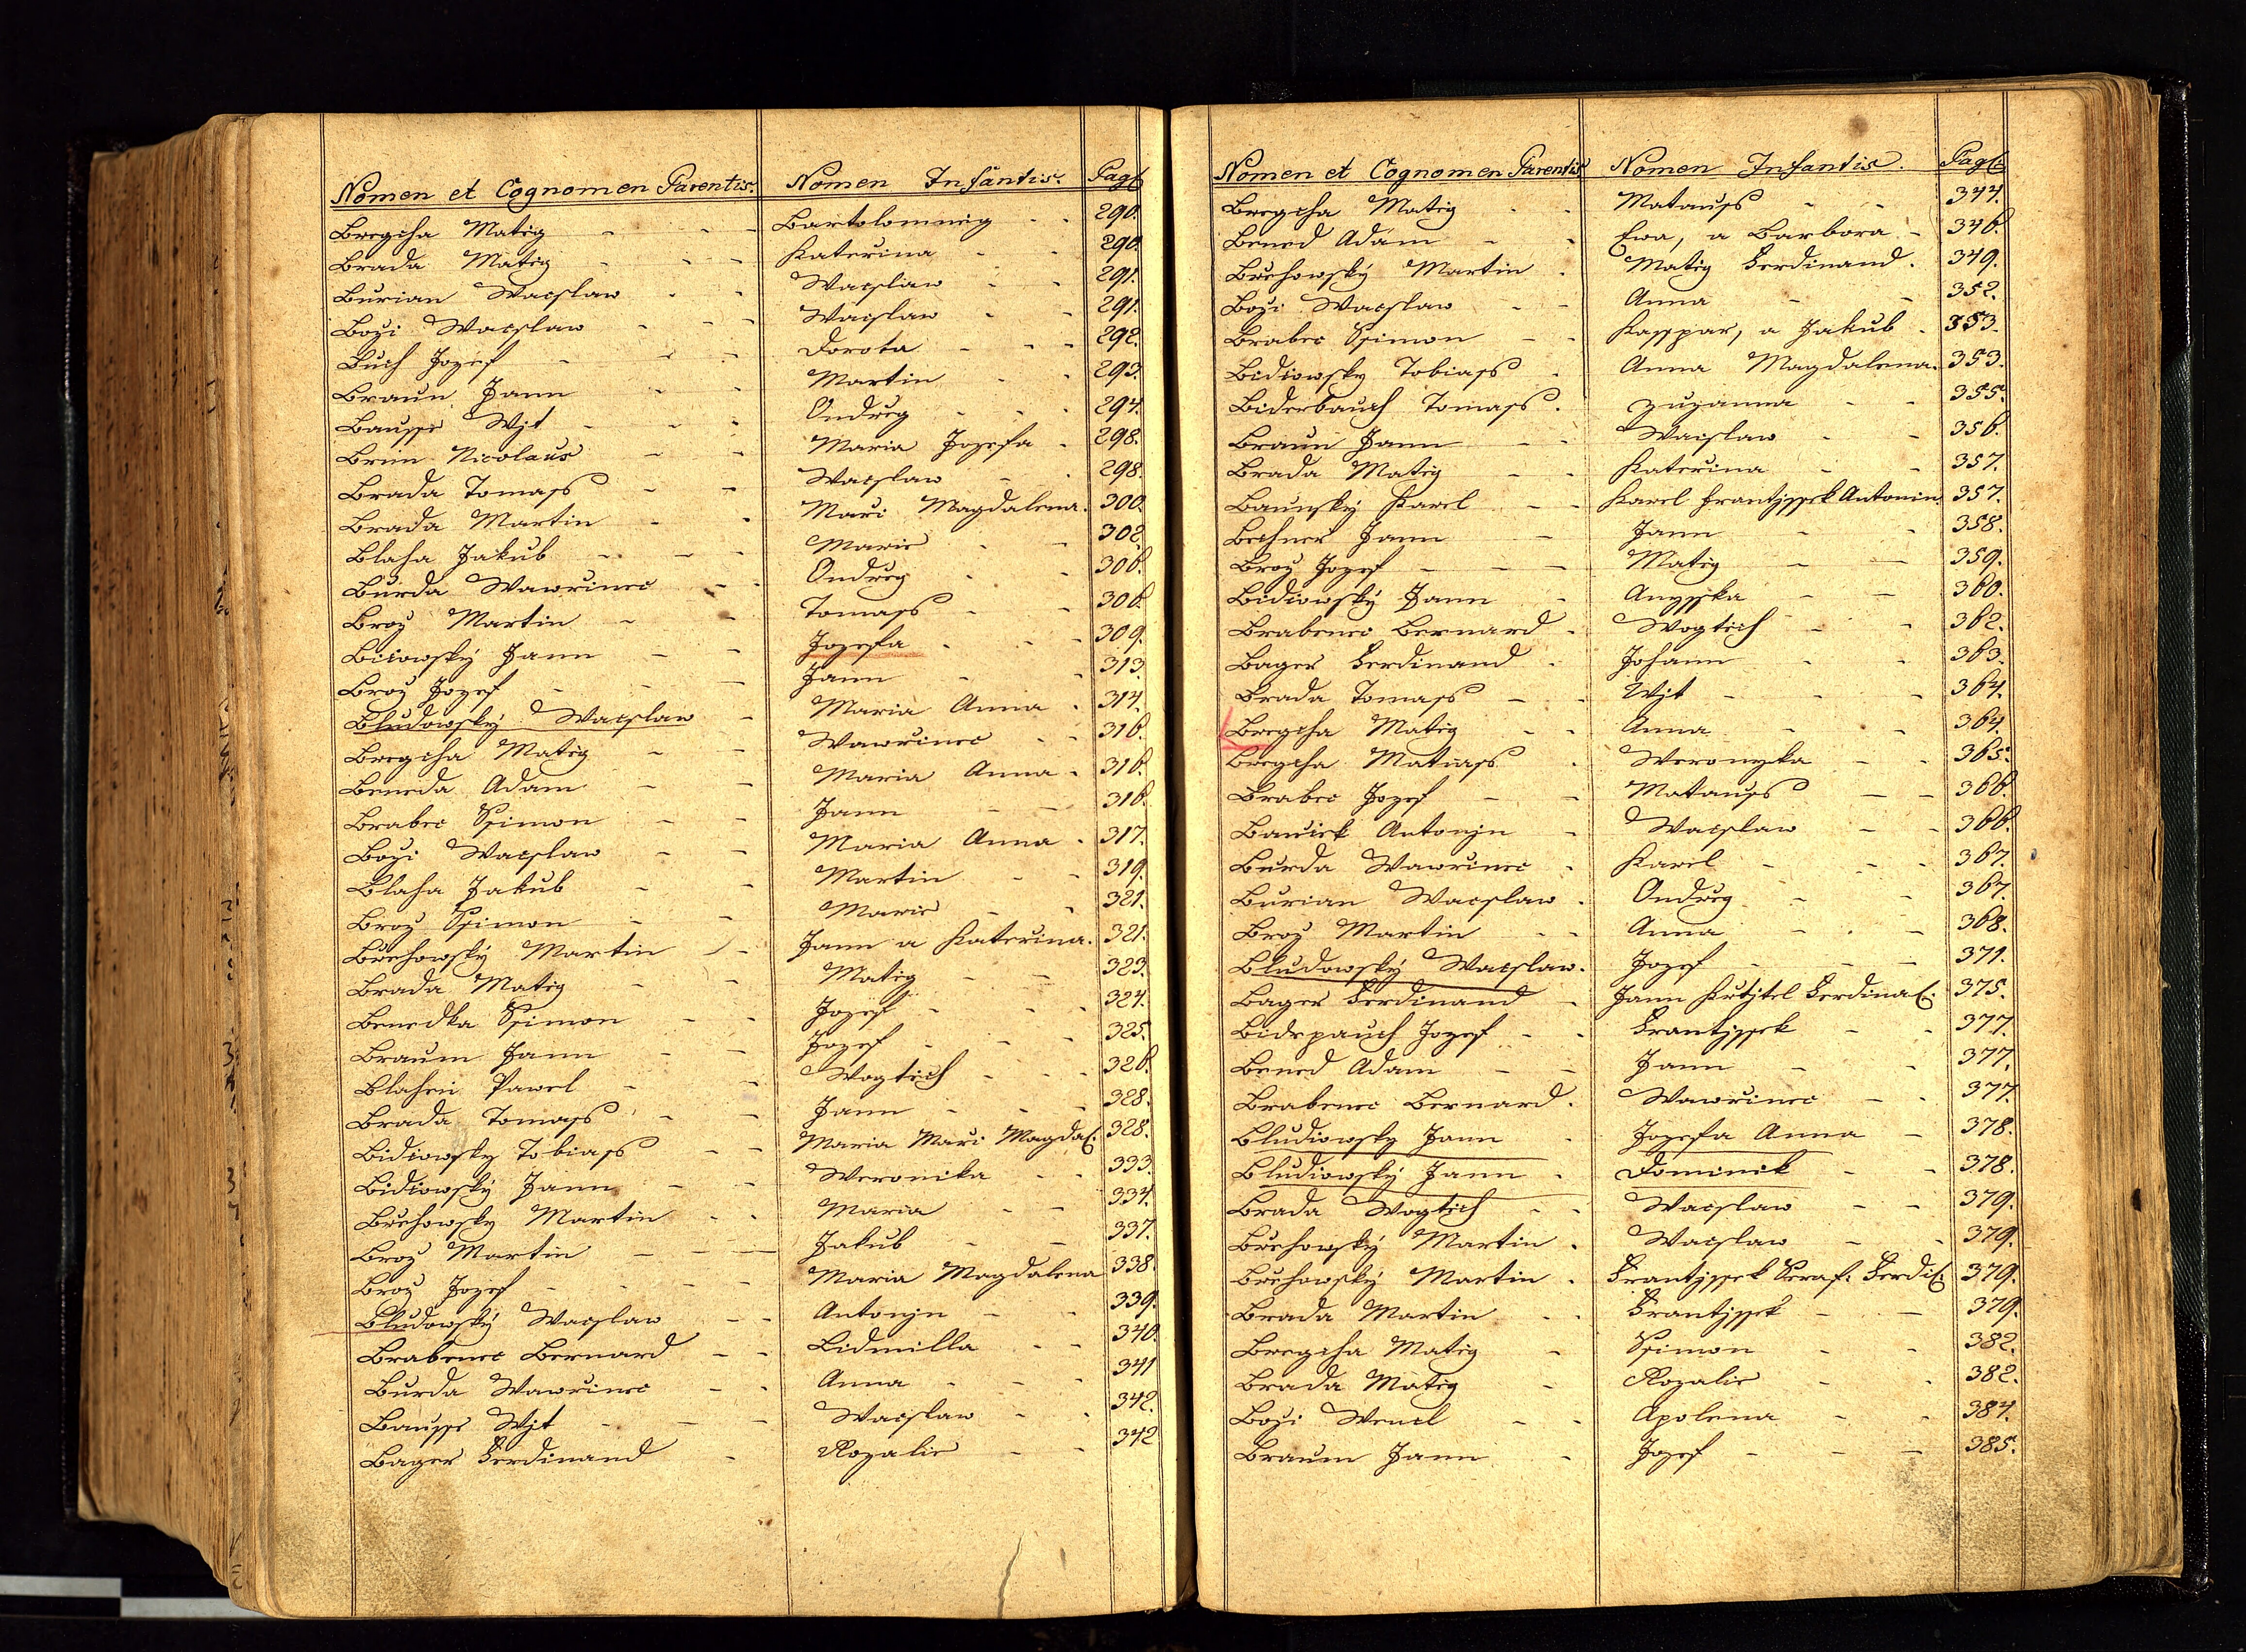 Nomen et Cognomen Parentis. Nomen Infantis. Pag:
Bregcha Matig - - - Bartolomneig - - 290.
Brada Matig - - - Katerina - - 290.
Burian Wacslaw - - Wacslaw - - 291.
Bozi Wacslaw - - - Wacslaw - - 291.
Buch Jozef - - - Dorota - - - 292.
Braun Jann - - Martin - - 293.
Bausse Wjt - - - Ondreg - - - 294.
Brim Nicolaus - - Maria Jozefa - 298.
Brada Tomass - - Wacslaw - - 298.
Brada Martin - - Mari Magdalena. 300.
Blaha Jakub - - - Marie - - 302.
Burda Wawrinec - - Ondreg - - 306.
Broz Martin - - Tomass - - 306.
Biciowský Jann - - Jozefa - - - 309.
Broz Jozef - - - Jann - - 313.
Bludowský Wacslaw - Maria Anna - 314.
Bregcha Matig - - Wawrinec - - 316.
Beneda Adam - - Maria Anna - 316.
Brabec Ssimon - - Jann - - 316.
Bozi Wacslaw - - Maria Anna - 317.
Blaha Jakub - - Martin - - 319.
Broz Ssimon - - Marie - - 321.
Brehowský Martin - - Jann a Katerina. 321.
Brada Matig - - Matig - - 323.
Benedka Ssimon - - Jozef - - - 324.
Braum Jann - - Jozef - - - 325.
Blahei Pawel - - Wogtiech - - - 326.
Brada Tomass - - Jann - - - 328.
Bidiowsky Tobiass - - Maria Mari Magdal: 328.
Bidiowský Jann - - Weronika - - 333.
Brehowsky Martin - - Maria - - 334.
Broz Martin - - - Jakub - - 337.
Broz Jozef - - - - Maria Magdalena 338.
Bludowský Wacslaw - - Antonjn - - 339.
Brabenec Bernard - - Lidmilla - - 340.
Burda Wawrinec - - Anna - - - 341
Bausse Wjt - - - Wacslaw - - 342.
Bager Ferdinand - Rozalie - - 342
Nomen et Cognomen Parentis Nomen Infantis. Pag:
Bregcha Matig - - Matauss - - 344.
Bened Adam - - Ewa, a Barbora - 346.
Brehowský Martin - Matig Ferdinand. 349.
Bozi Wacslaw - - Anna - - 352.
Brabec Ssimon - - Kasspar, a Jakub - 353.
Bidiowsky Tobiass - Anna Magdalena. 353.
Biderbauch Tomass. Zuzanna - - 355.
Braun Jann - - Wacslaw - - 356.
Brada Matig - - Katerina - - 357.
Baunský Karel - - Karel Frantjssek Antonin 357.
Bechner Jann - Jann - - 358.
Broz Jozef - - - Matig - - 359.
Bidiowský Jann - Anysska - - 360.
Brabenec Bernard - Wogtiech - - 362.
Bager Ferdinand - Johann - - 363.
Brada Tomass - - Wjt - - - 364.
Bregcha Matig - - Anna - - 364.
Bregcha Matiass - Weronyka - - 365.
Brabec Jozef - - Matauss - - 366.
Bauiek Antonjn - Wacslaw - - 366.
Burda Wawrinec - Karel - - - 367.
Burian Wacslaw - Ondreg - - 367.
Broz Martin - - Anna - - - 368.
Bludowský Wacslaw. Jozef - - - 371.
Bager Ferdinand - Jann Krtjtel Ferdinal: 375.
Bidepauch Jozef - - Frantjssek - - 377.
Bened Adam - - Jann - - 377.
Brabenec Bernard. Wawrinec - - 377.
Bludiowsky Jann - Jozefa Anna - 378.
Bludiowský Jann - Dominik - - 378.
Brada Wogtiech - - Wacslaw - - 379.
Brehowský Martin - Wacslaw - - 379.
Brehowský Martin - Frantjssek Seraf: Ferdi: 379.
Brada Martin - - Frantjssek - - 379.
Bregcha Matig - Ssimon - - 382.
Brada Matig - Rozalie - - 382.
Bozi Wencl - - Apolena - - 384.
Braum Jann - Jozef - - - 385.